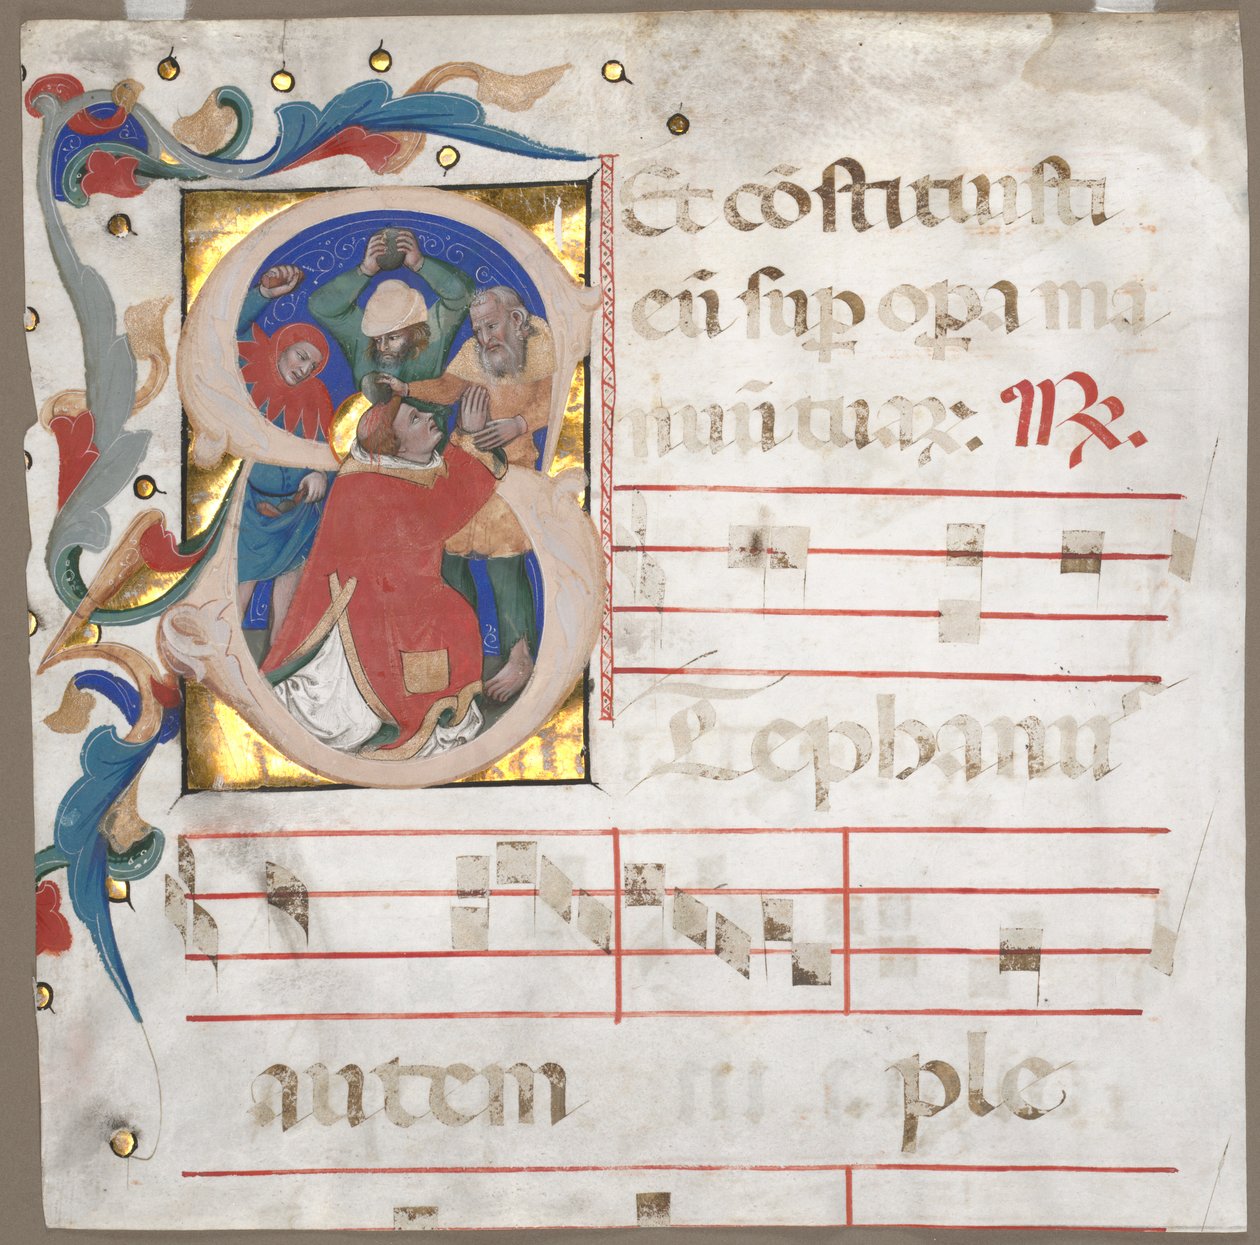 Et cōstituisti
eū sup opa ma
nuū tuaꝝ. R.
Tephanus
autem ple